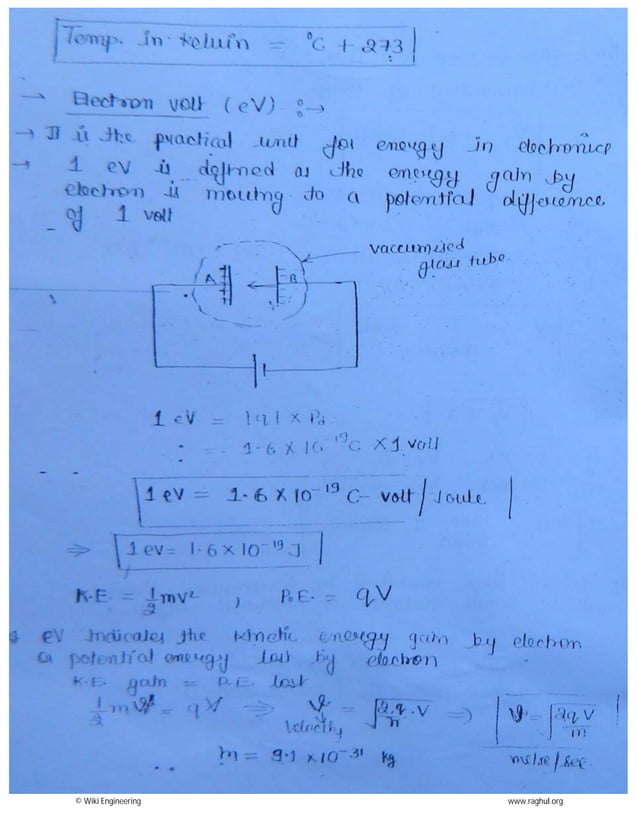 Temp. In Kelvin = °C + 273
→ Electron volt (eV) :→
→ It is the practical unit for energy in electronics
→ 1 eV is defined as the energy gain by
electron is moving to a potential difference
of 1 volt
vaccumised
glass tube.
A
B
1 eV = |q| × Pd
= 1.6 × 10⁻¹⁹C × 1 volt
1 eV = 1.6 × 10⁻¹⁹ C- volt / Joule
⇒ 1 eV = 1.6 × 10⁻¹⁹ J
K.E. = 1/2 mv² , P.E. = qV
eV Indicates the kinetic energy gain by electron
or potential energy lost by electron
K.E. gain = P.E. lost
1/2 mv² = qV ⇒ v = √(2.q/m . V) ⇒ v = √(2qV/m)
Velocity
m = 9.1 × 10⁻³¹ kg
mtr/sec.
© Wiki Engineering
www.raghul.org